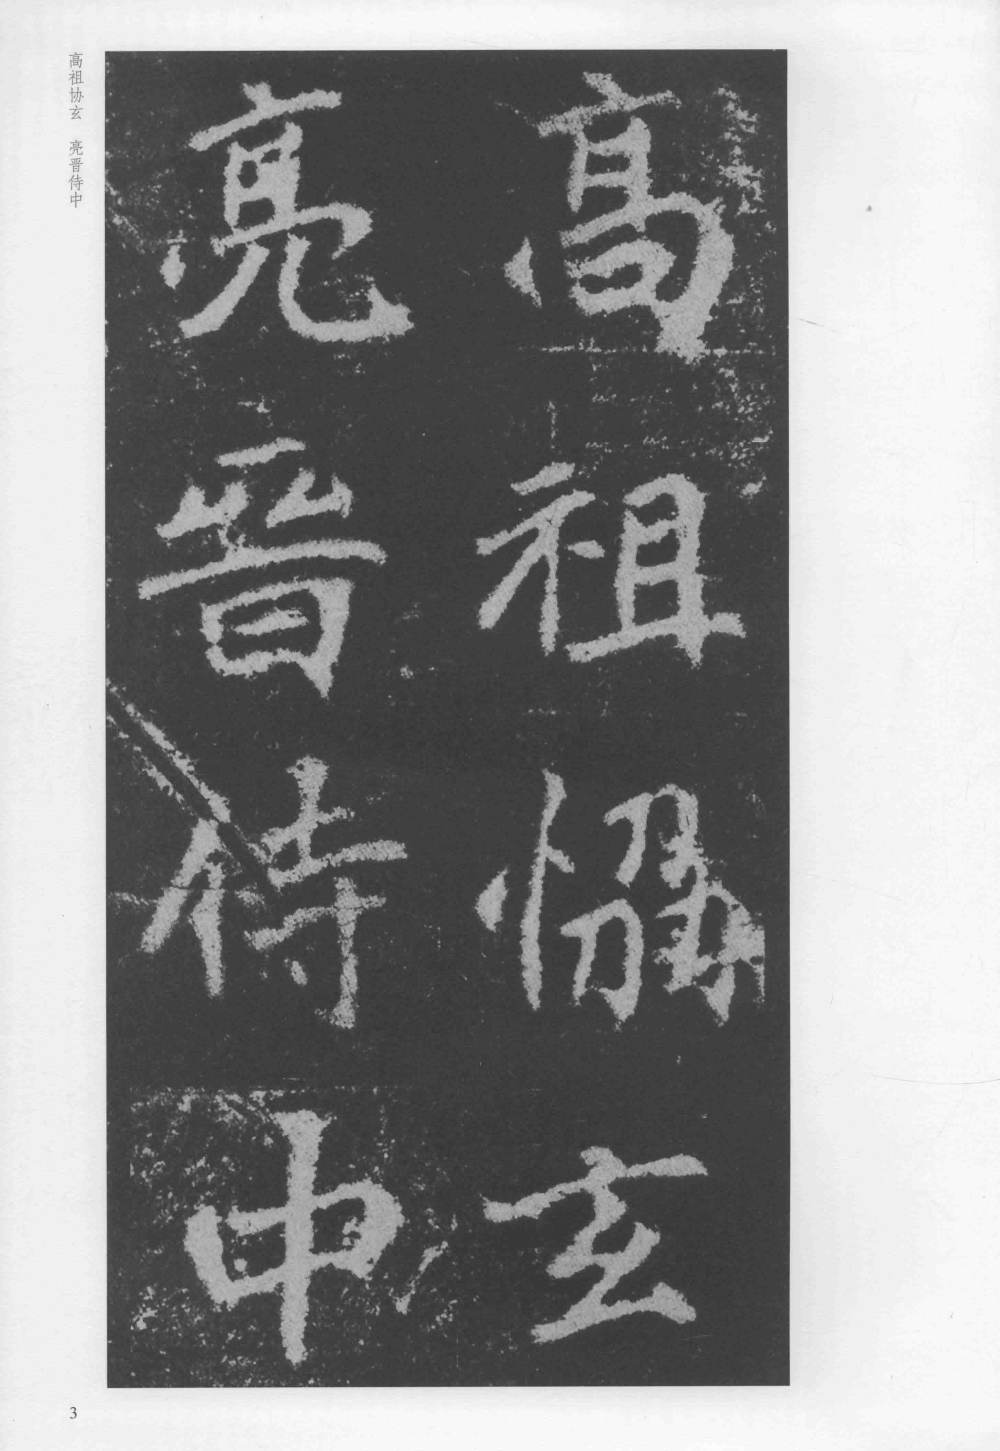 高祖恊玄
亮晋侍中
高祖协玄 亮晋侍中
3